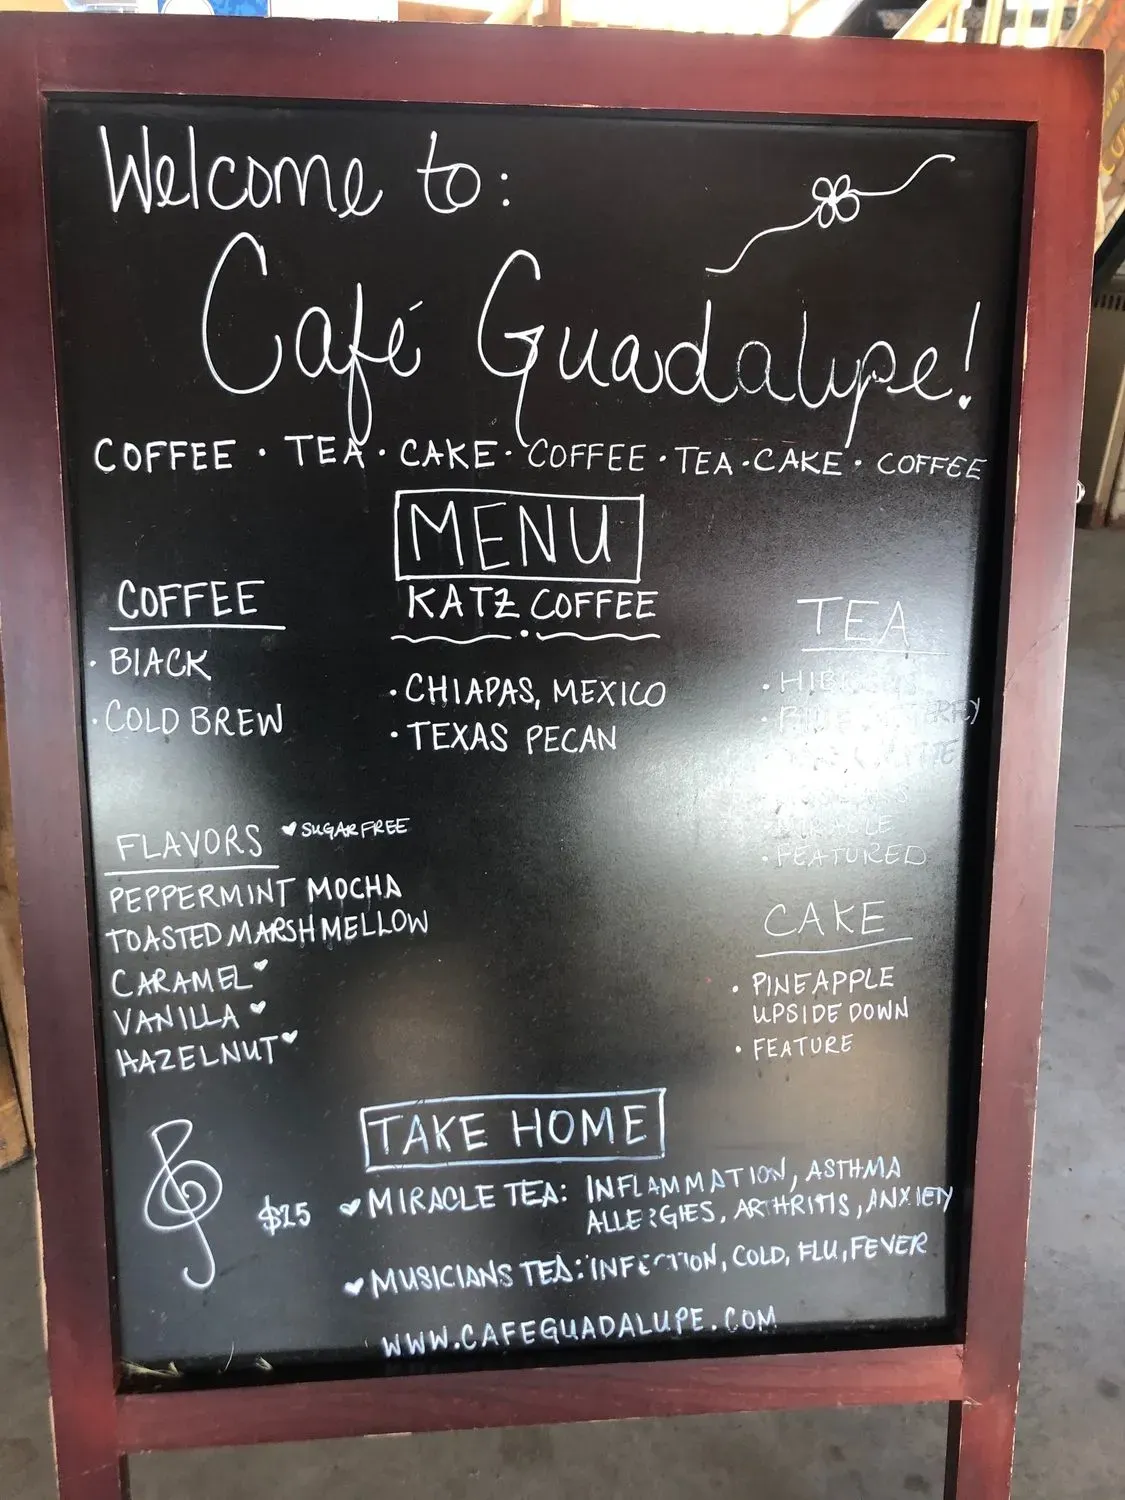 Welcome to:
Café Guadalupe!
COFFEE · TEA · CAKE · COFFEE · TEA · CAKE · COFFEE
MENU
COFFEE
· BLACK
· COLD BREW
KATZ COFFEE
· CHIAPAS, MEXICO
· TEXAS PECAN
TEA
MIRACLE
· FEATURED
FLAVORS ♥ SUGAR FREE
PEPPERMINT MOCHA
TOASTED MARSHMELLOW
CARAMEL ♥
VANILLA ♥
HAZELNUT ♥
CAKE
· PINEAPPLE
UPSIDE DOWN
· FEATURE
TAKE HOME
$25 ♥ MIRACLE TEA: INFLAMMATION, ASTHMA
ALLERGIES, ARTHRITIS, ANXIETY
♥ MUSICIANS TEA: INFECTION, COLD, FLU, FEVER
WWW.CAFEGUADALUPE.COM